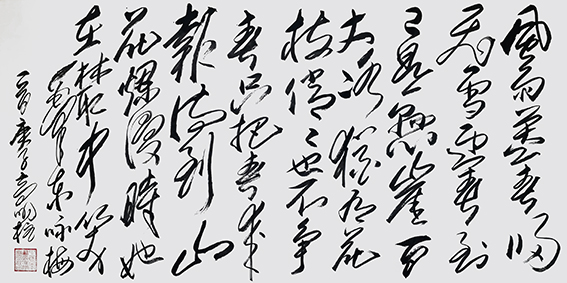 風雨送春歸
飛雪迎春到
已是懸崖百
丈冰猶有花
枝俏〻也不爭
春只把春來
報待到山
花爛漫時她
在叢中笑
毛澤東咏梅
庚子